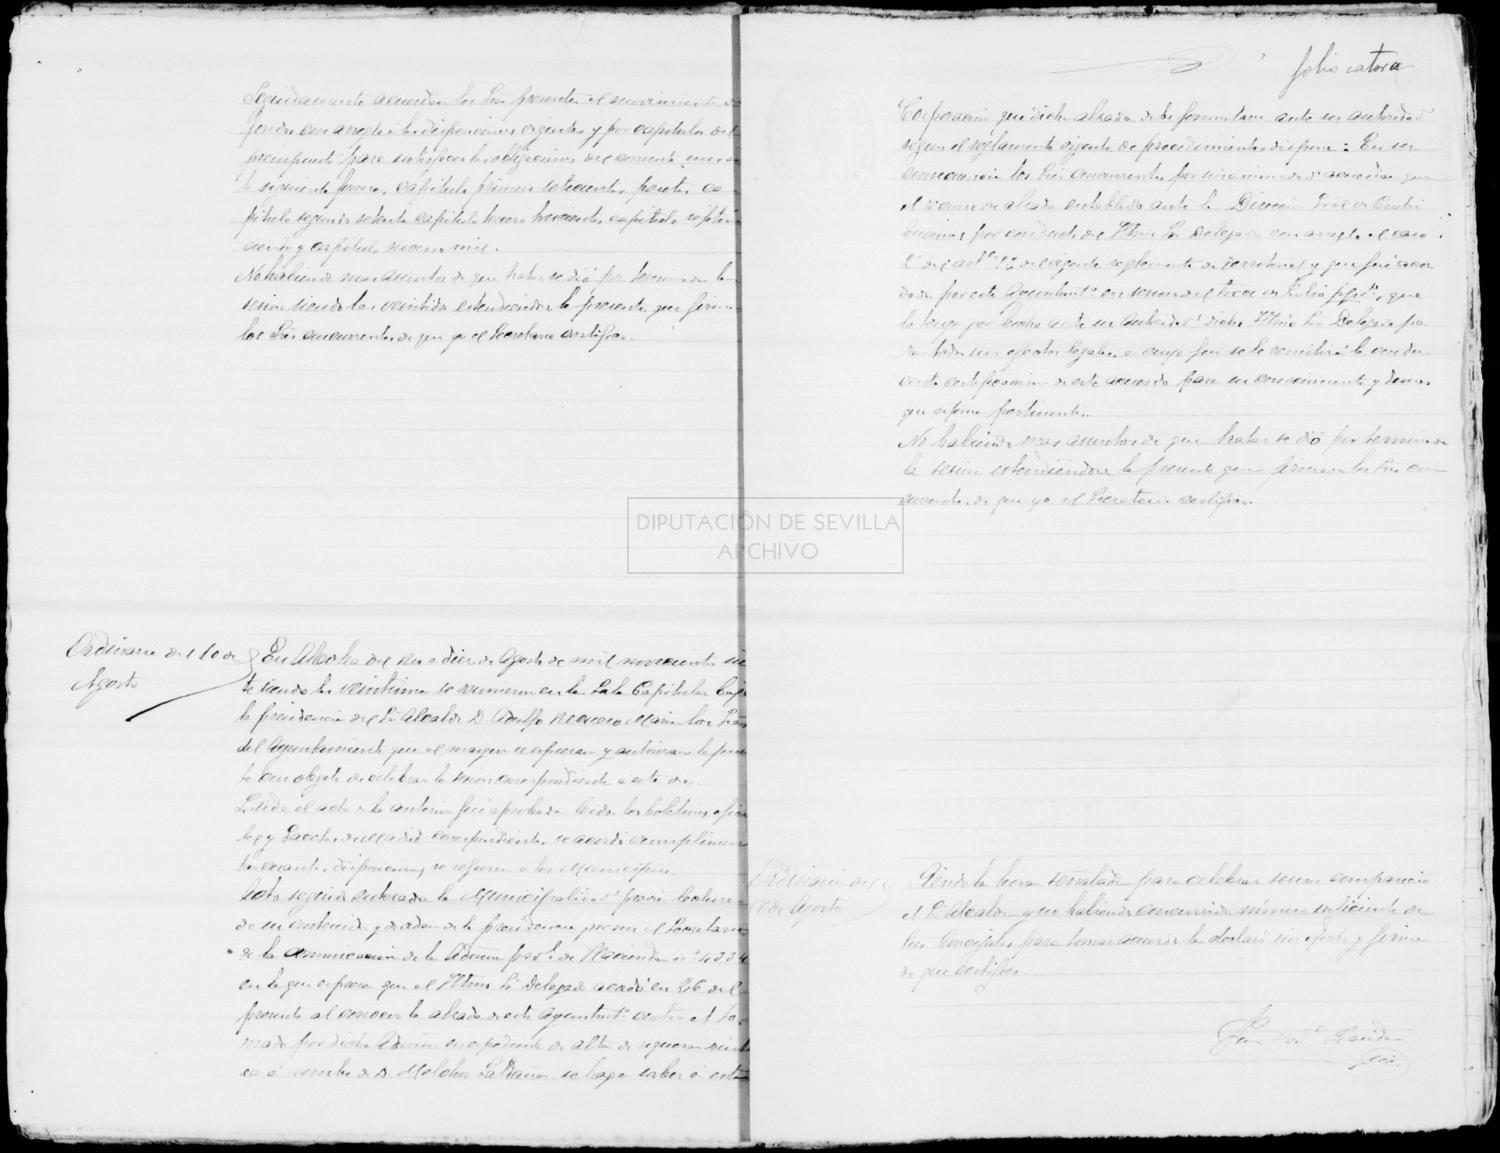 Seguidamente acuerdan los Sres presentes el movimiento de
fondos con arreglo á las disposiciones vigentes y por capitulos del
presupuesto para satisfacer las obligaciones del corriente mes en
la siguiente forma, capitulo primero setecientas pesetas, ca-
pitulo segundo setenta capitulo tercero trescientas capitulo septimo
y capitulo noveno mil.
No habiendo mas asuntos de que tratar se dió por terminada la
sesion siendo las veintidos extendiendose la presente que firman
los Sres concurrentes de que yo el Secretario certifico.
Ordinaria del 10 de
Agosto
En Alcolea del Rio a diez de Agosto de mil novecientos sie
te siendo las veintiuna se reunieron en la Sala Capitular bajo
la presidencia del Sr Alcalde D. Adolfo Marin los Sres
del Ayuntamiento que al margen se expresan y autorizan la presen
te con objeto de celebrar la sesion correspondiente a este dia
Leida el acta de la anterior fué aprobada leidos los boletines oficia
les y Gacetas de Madrid correspondientes se acordó cumplimen
tar cuantas disposiciones se refieren a los Municipios.
Acto seguido enterada la Municipalidad previa lectura
de su contenido y de orden de la presidencia por mi el Secretario
de la comunicacion de la Admon prol de Hacienda nº
en la que expresa que el Iltmo Sr Delegado acordó en 26 del
presente al conocer la alzada de este Ayuntmtº contra el to-
mado por dicha Admon en expediente de alta de riqueza rústi
ca á nombre de D. Melchor Saldaña se haga saber á esta
folio catorce
Corporacion que dicha alzada debe formularse ante su autoridad
segun el reglamento vigente de procedimientos dispone: En su
consecuencia los Sres concurrentes por unanimidad acuerdan que
el recurso de alzada entablado ante la Direccion Gral de Contri
buciones por conducto del Iltmo Sr Delegado con arreglo al caso
2º del artº del vigente reglamento de territorial y que fué acor
dado por este Ayuntmtº en sesion del trece de Julio ppdº, que
lo tenga por hecho ante su autoridad dicho Iltmo Sr Delegado pa
ra todos sus efectos legales, a cuyo fin se le remitirá la condu-
cente certificacion de este acuerdo para su conocimiento y demas
que estime pertinentes.
No habiendo mas asuntos de que tratar se dió por terminada
la sesion extendiéndose la presente que firman los Sres con
currentes de que yo el Secretario certifico.
DIPUTACIÓN DE SEVILLA
ARCHIVO
Ordinaria del
17 de Agosto
Siendo la hora señalada para celebrar sesion compareció
el Sr Alcalde y no habiendo concurrido número suficiente de
Sres Concejales para tomar acuerdo la declaró sin efecto y firma
de que certifico.